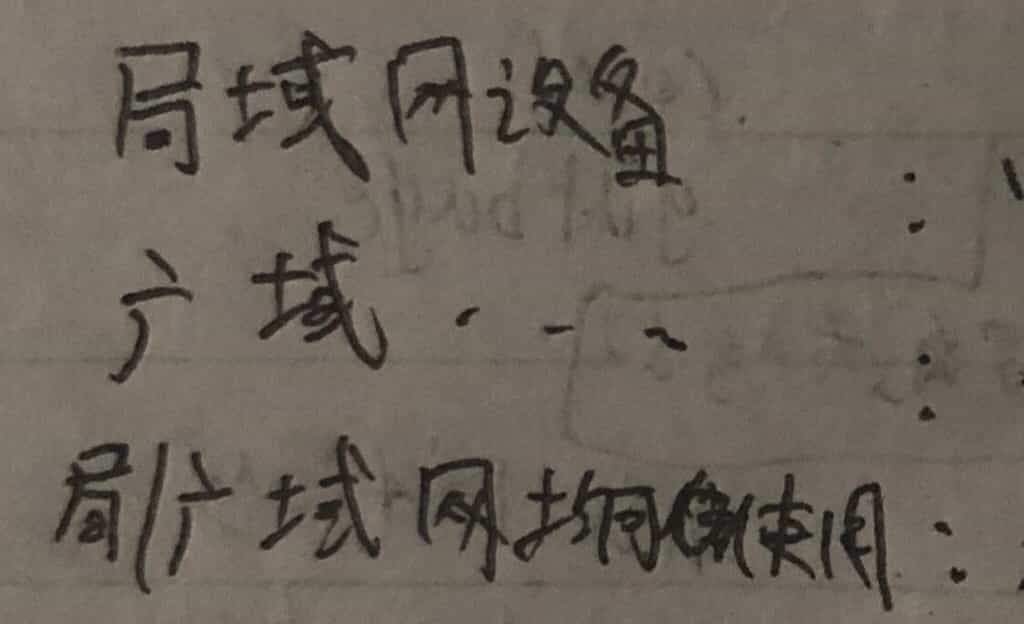 局域网设备:
广域···:
局/广域网均使用: